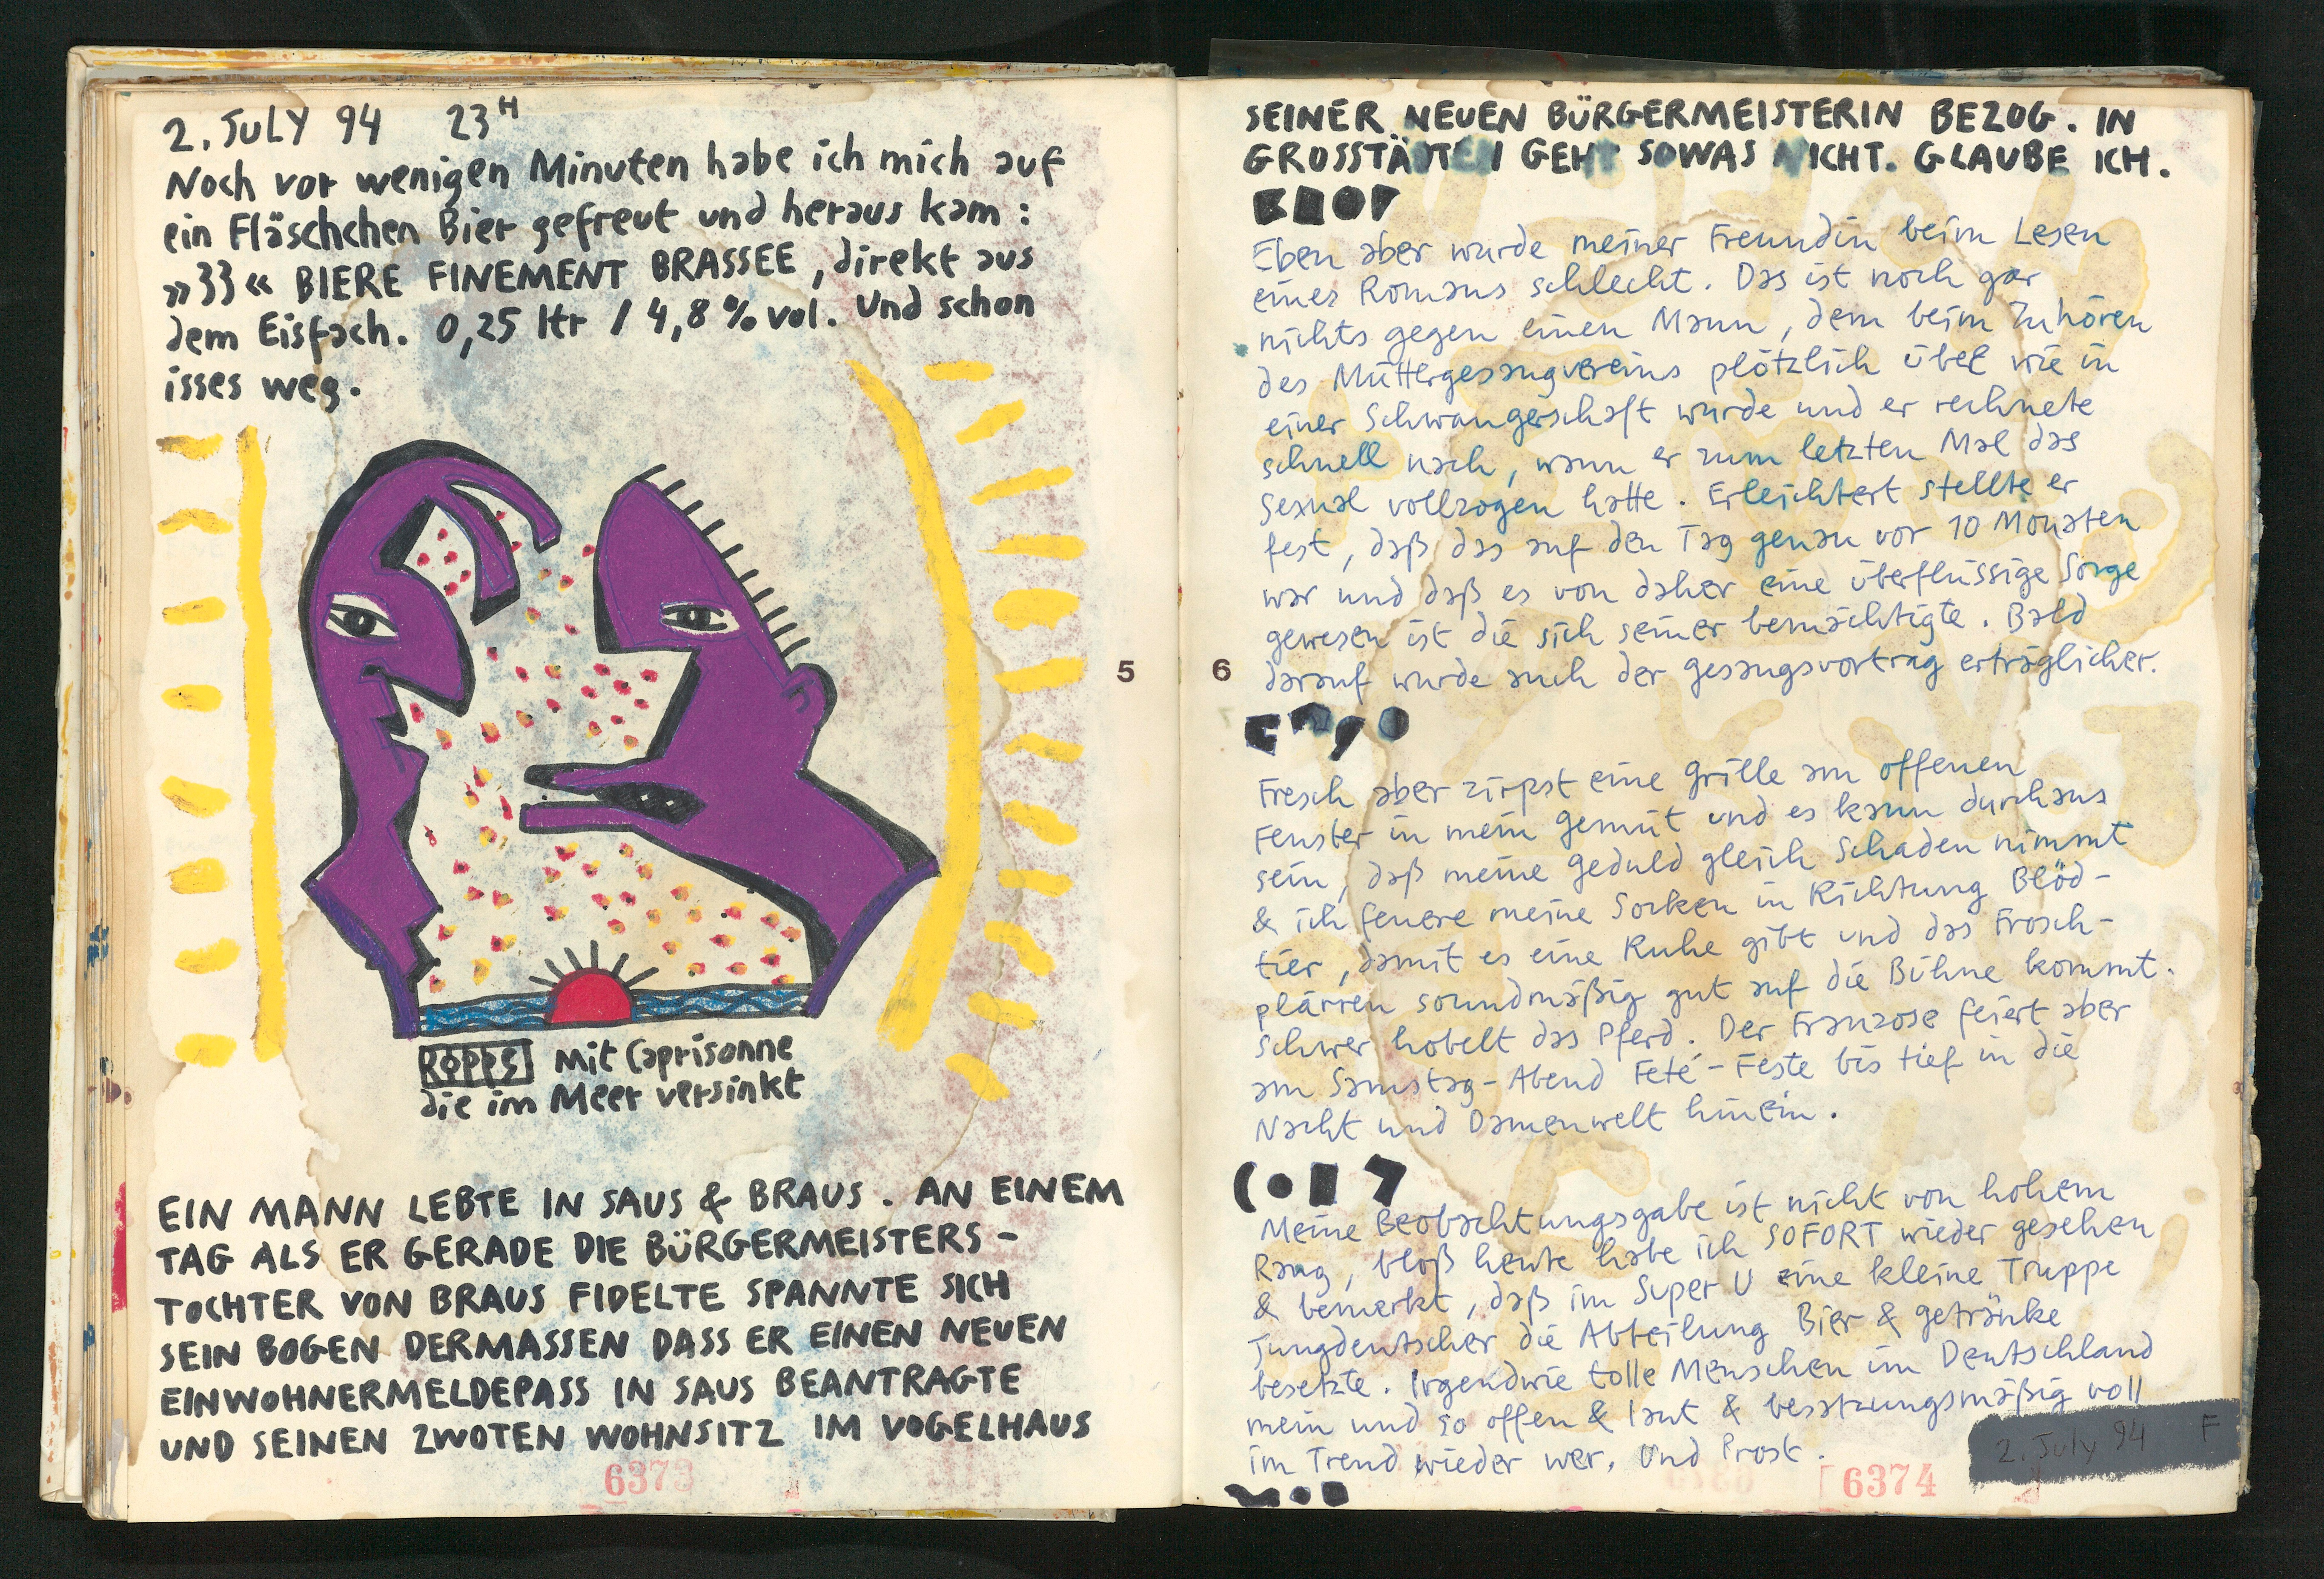 2. JULY 94 23H
Noch vor wenigen Minuten habe ich mich auf
ein Fläschchen Bier gefreut und heraus kam :
»33« BIERE FINEMENT BRASSEE, direkt aus
dem Eisfach. 0,25 ltr / 4,8 % vol. Und schon
isses weg.
mit Caprisonne
die im Meer versinkt
EIN MANN LEBTE IN SAUS & BRAUS. AN EINEM
TAG ALS ER GERADE DIE BÜRGERMEISTERS-
TOCHTER VON BRAUS FIDELTE SPANNTE SICH
SEIN BOGEN DERMASSEN DASS ER EINEN NEUEN
EINWOHNERMELDEPASS IN SAUS BEANTRAGTE
UND SEINEN ZWOTEN WOHNSITZ IM VOGELHAUS
6373
5
6
SEINER NEUEN BÜRGERMEISTERIN BEZOG. IN
GROSSTÄDTEN GEHT SOWAS NICHT. GLAUBE ICH.
Eben aber wurde meiner Freundin beim Lesen
eines Romans schlecht. Das ist noch gar
nichts gegen einen Mann, dem beim Zuhören
des Müttergesangvereins plötzlich übel wie in
einer Schwangerschaft wurde und er rechnete
schnell nach, wann er zum letzten Mal das
Sexual vollzogen hatte. Erleichtert stellte er
fest, daß das auf den Tag genau vor 10 Monaten
war und daß es von daher eine überflüssige Sorge
gewesen ist die sich seiner bemächtigte. Bald
darauf wurde auch der Gesangsvortrag erträglicher.
Fresch aber zirpst eine Grille am offenen
Fenster in mein Gemüt und es kann durchaus
sein, daß meine Geduld gleich Schaden nimmt
& ich feuere meine Socken in Richtung Blöd-
tier, damit es eine Ruhe gibt und das Frosch-
plärren soundmäßig gut auf die Bühne kommt.
Schwer hobelt das Pferd. Der Franzose feiert aber
am Samstag-Abend Feté-Feste bis tief in die
Nacht und Damenwelt hinein.
Meine Beobachtungsgabe ist nicht von hohem
Rang, bloß heute habe ich SOFORT wieder gesehen
& bemerkt, daß im Super U eine kleine Truppe
Jungdeutscher die Abteilung Bier & Getränke
besetzte. Irgendwie tolle Menschen im Deutschland
mein und so offen & laut & besatzungsmäßig voll
im Trend wieder wer. Und Prost.
2. July 94 F
6374